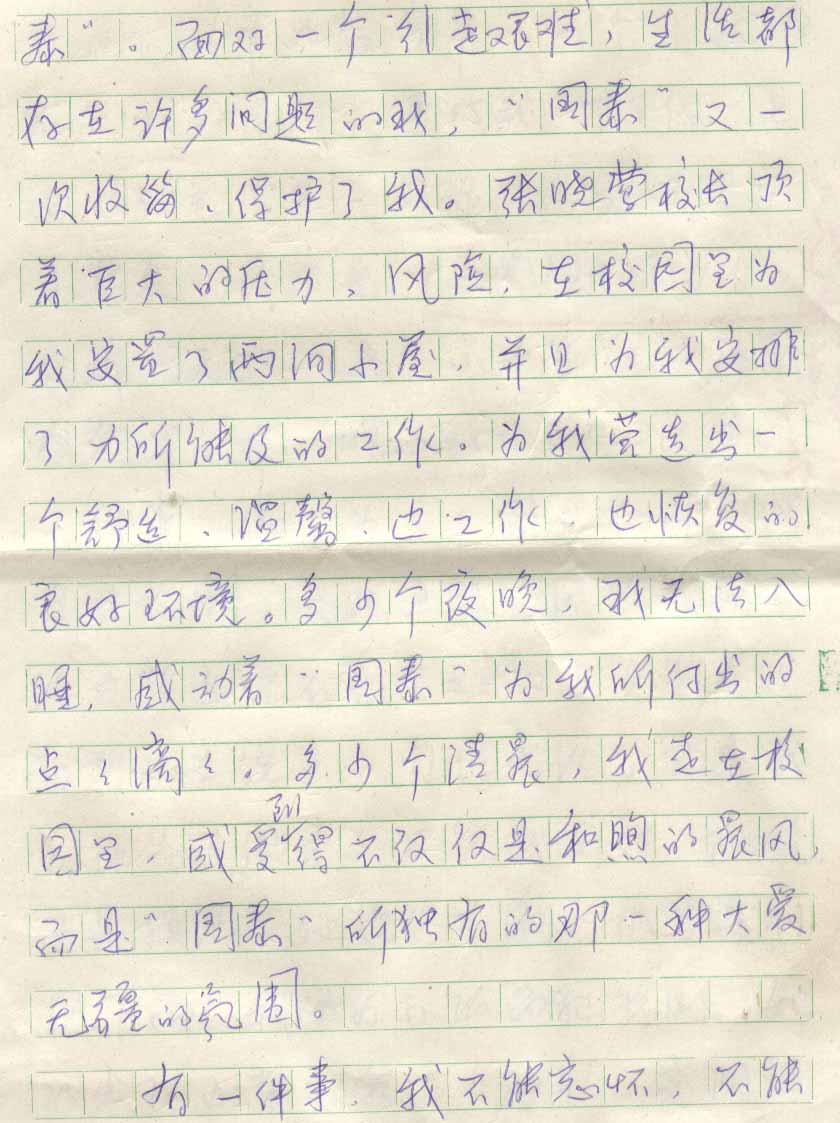 泰”。面对一个引起艰难，生活都
存在许多问题的我，“国泰”又一
次收留、保护了我。张晓莹校长顶
着巨大的压力、风险，在校园里为
我安置了两间小屋，并且为我安排
了力所能及的工作。为我营造出一
个舒适、温馨、也工作、也恢复的
良好环境。多少个夜晚，我无法入
睡，感动着“国泰”为我所付出的
点点滴滴。多少个清晨，我走在校
园里，感受到得不仅仅是和煦的晨风，
而是“国泰”所独有的那一种大爱
无疆的氛围。
有一件事，我不能忘怀，不能